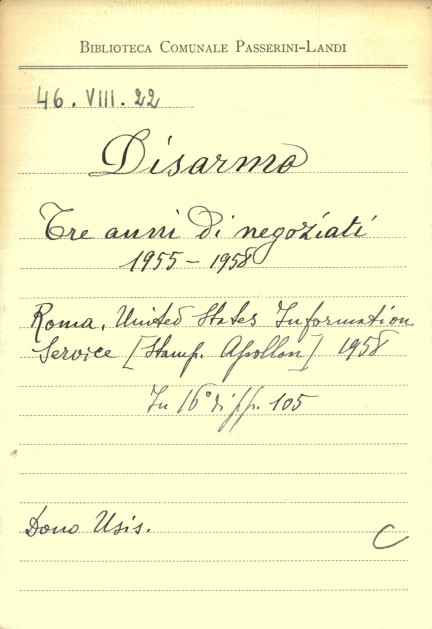 BIBLIOTECA COMUNALE PASSERINI-LANDI
46. VIII. 22
Disarmo
Tre anni di negoziati
1955 - 1958
Roma, United States Information
Service [Stamp. Apollon] 1958
In 16° di pp. 105
Dono Usis.
C